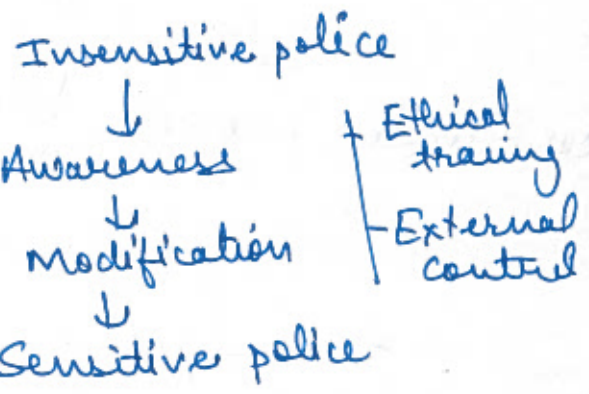 Insensitive police
↓
Awareness
↓
Modification
↓
Sensitive police
Ethical
traing
External
control